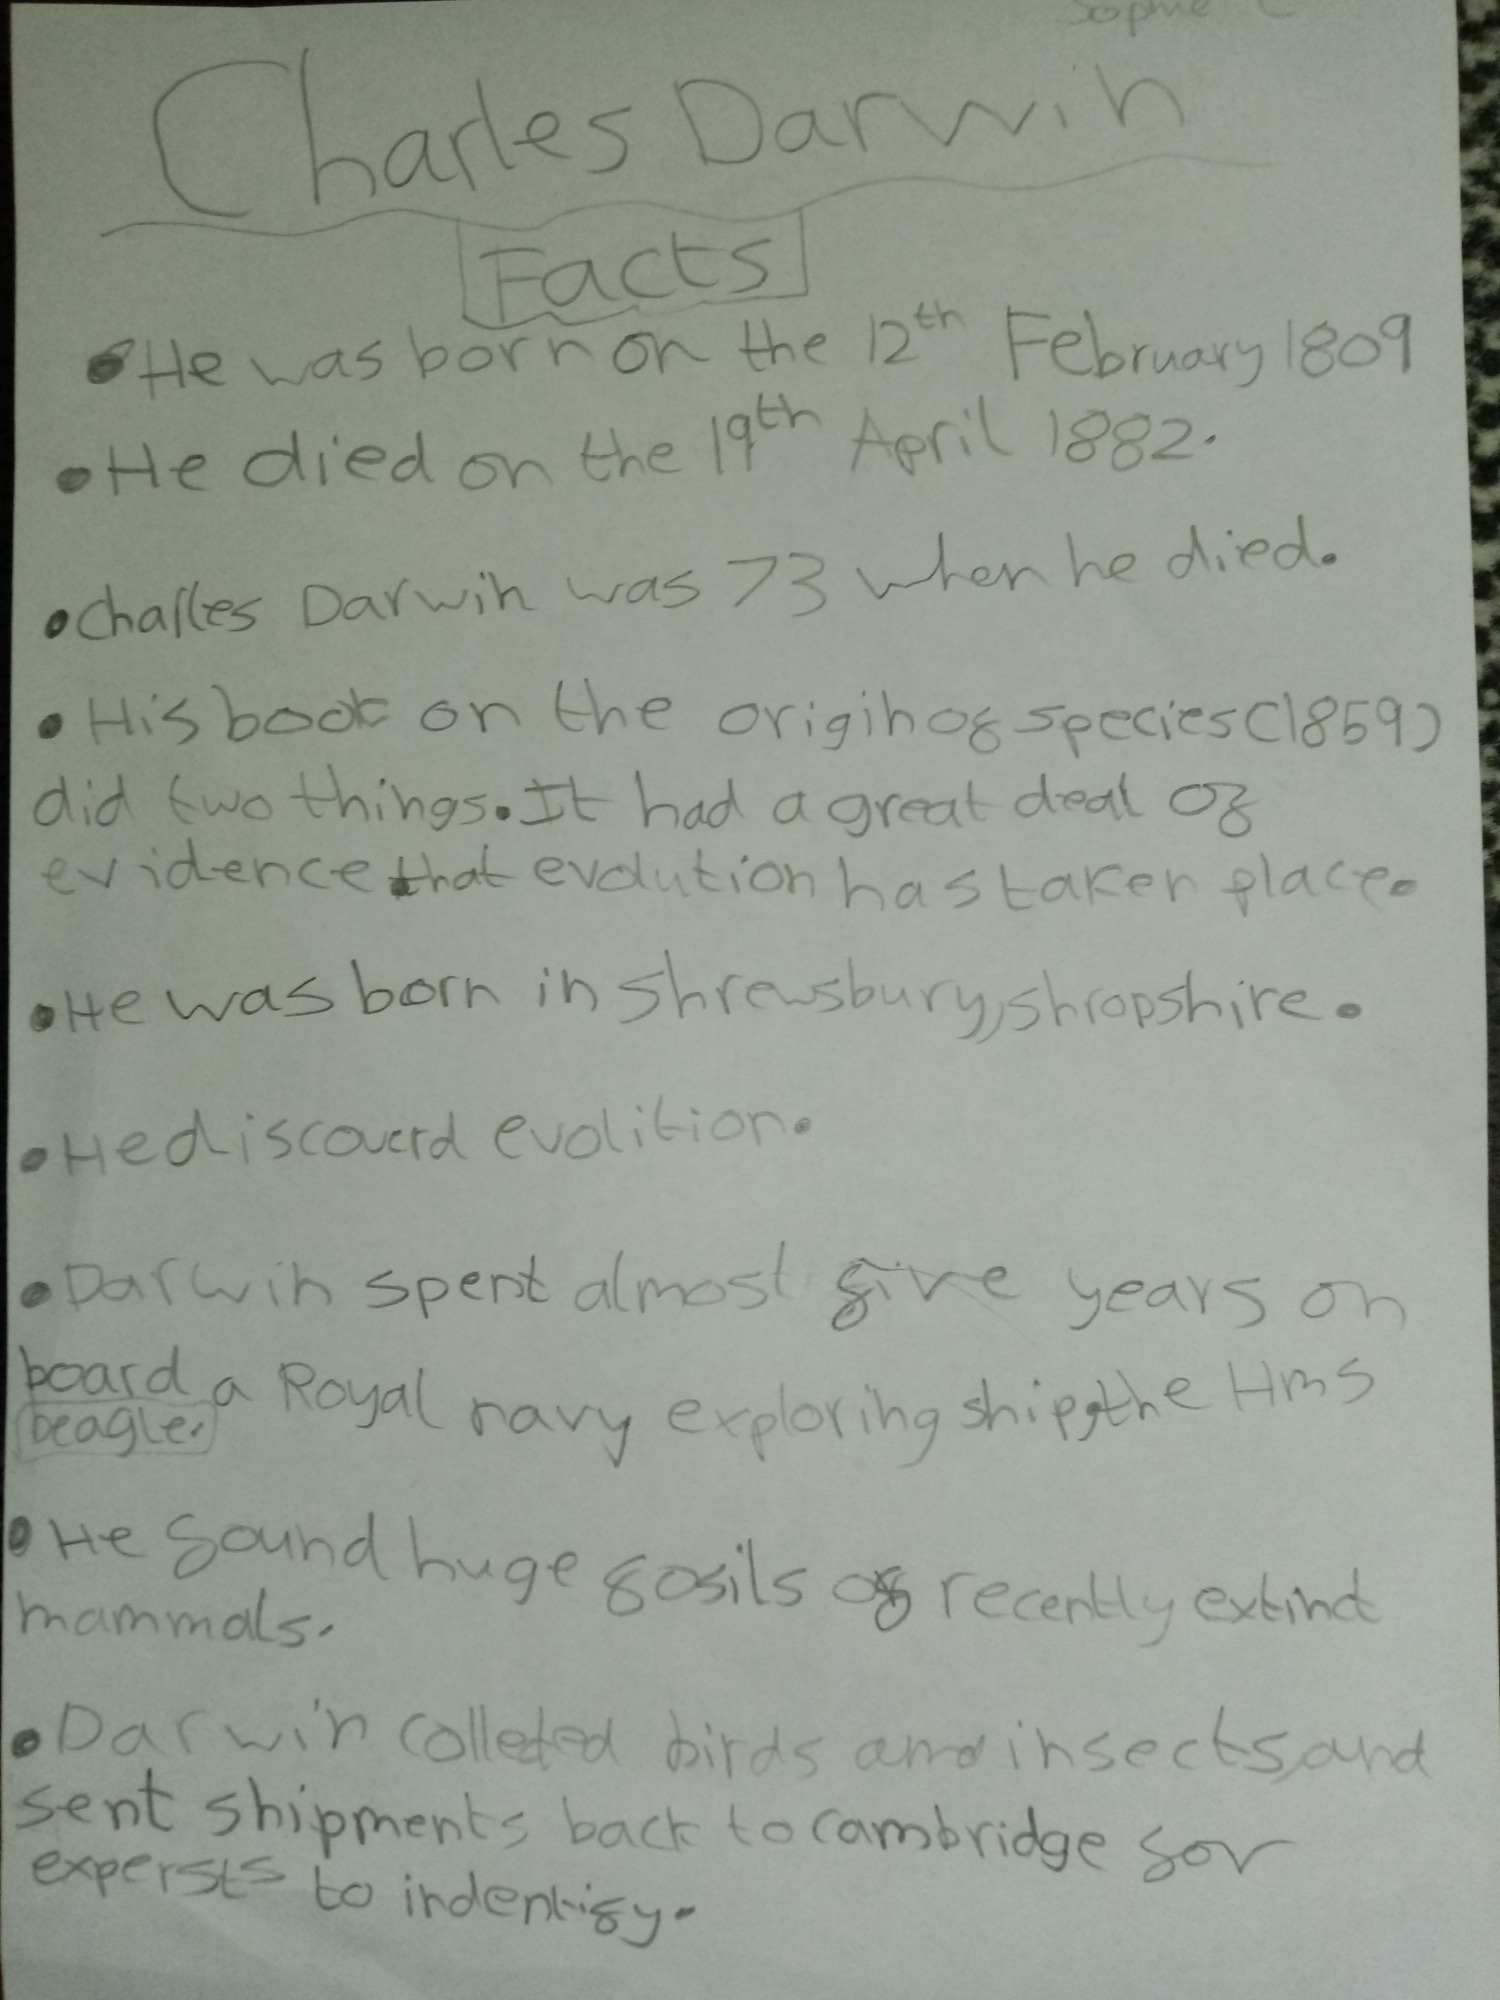 Sophie C
Charles Darwin
Facts
• He was born on the 12th February 1809
• He died on the 19th April 1882.
• Charles Darwin was 73 when he died.
• His book on the origin of species (1859)
did two things. It had a great deal of
evidence that evolution has taken place.
• He was born in Shrewsbury, shropshire.
• He discoverd evolition.
• Darwin spent almost five years on
board a Royal navy exploring ship, the Hms
beagle.
• He found huge fosils of recently extinct
mammals.
• Darwin colleted birds and insects, and
sent shipments back to cambridge for
expersts to indentify.